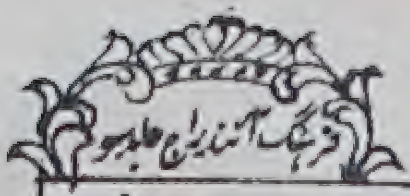 فرهنگ آنندراج جلد سو